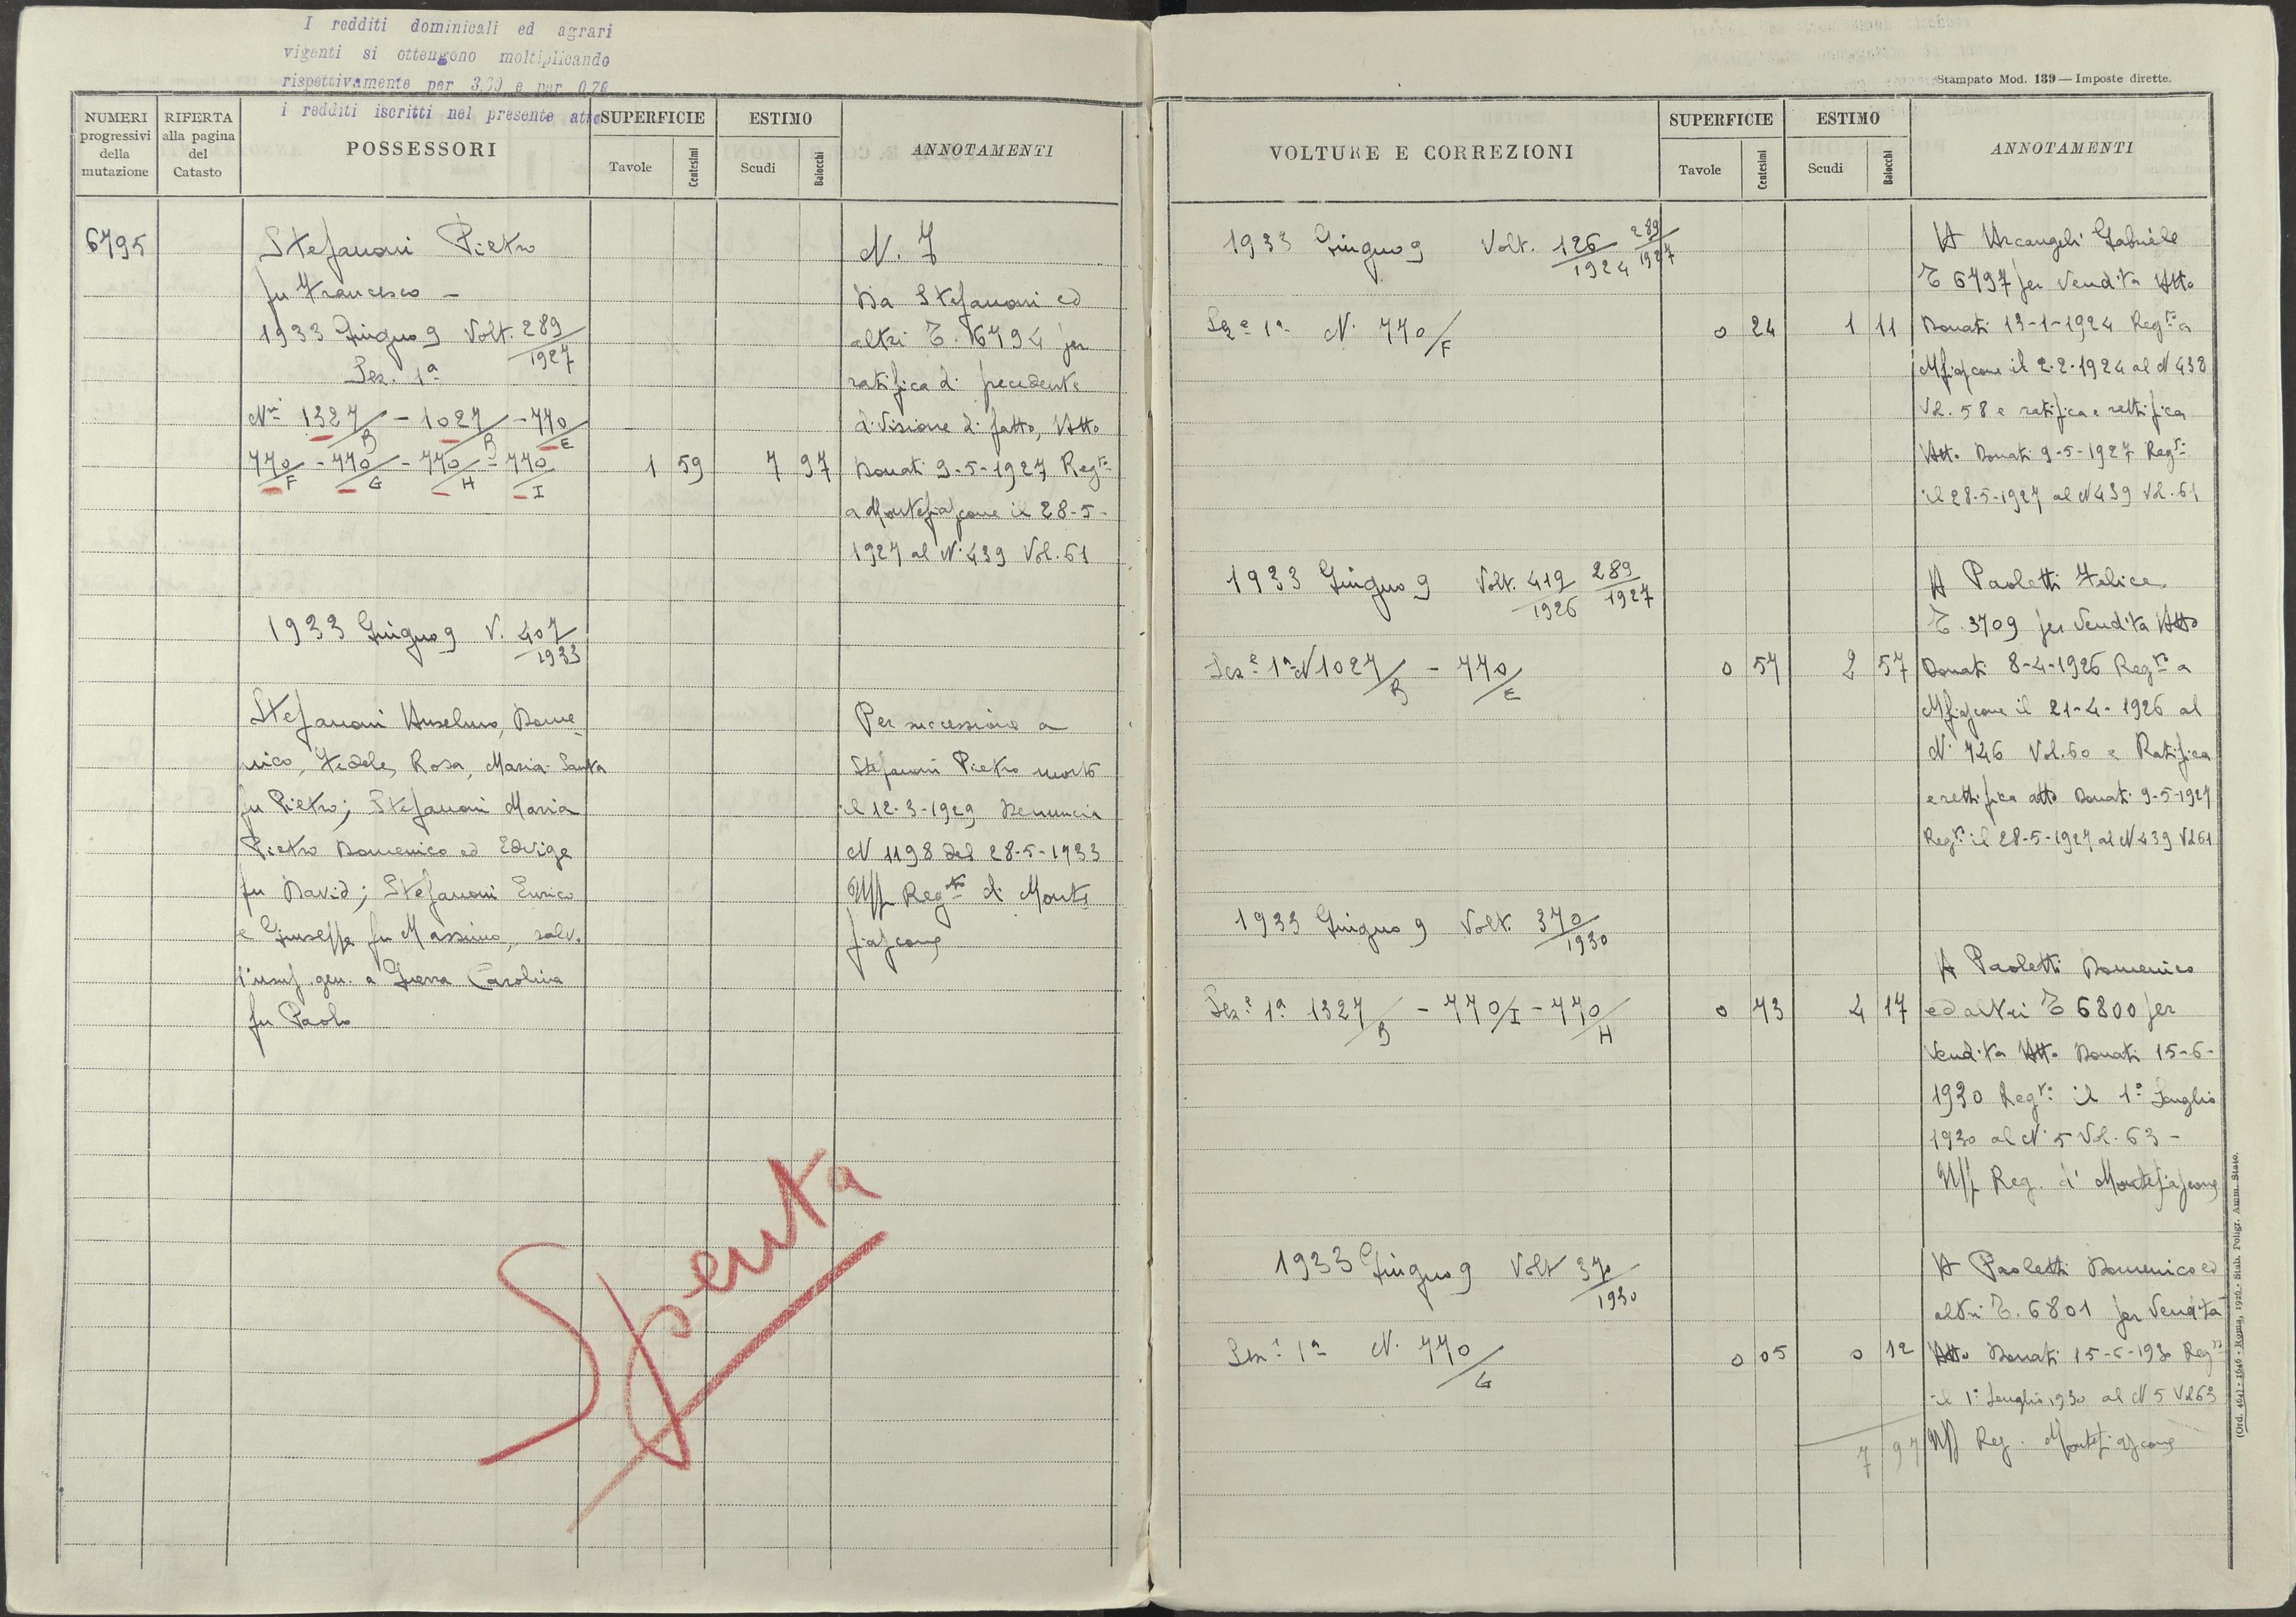 I redditi dominicali ed agrari
vigenti si ottengono moltiplicando
rispettivamente per 3,60 e per 0,70
i redditi iscritti nel presente atto
NUMERI progressivi della mutazione
RIFERTA alla pagina del Catasto
POSSESSORI
SUPERFICIE
Tavole
Centesimi
ESTIMO
Scudi
Baiocchi
ANNOTAMENTI
6795
Stefanoni Pietro
fu Francesco -
1933 Giugno 9 Volt. 289/1927
Sez. 1a
Nri 1327/B - 1027/B - 770/E
770/F - 770/G - 770/H - 770/I 1 59 7 97
1933 Giugno 9 V. 407/1933
Stefanoni Anselmo, Dome
nico, Fedele, Rosa, Maria Santa
fu Pietro; Stefanoni Maria
Pietro Domenico ed Edvige
fu David; Stefanoni Enrico
e Giuseppe fu Massimo, salv.
l'usuf. gen. a Guerra Carolina
fu Paolo
N. 7
Da Stefanoni ed
altri T. 6794 per
ratifica di precedente
divisione di fatto, Atto
Donati 9-5-1927 Regto
a Montefiascone il 28-5-
1927 al N. 439 Vol. 61
Per successione a
Stefanoni Pietro morto
il 12-3-1929 Denuncia
N 1198 del 28-5-1933
Uff Regtro di Monte
fiascone
Spenta
Stampato Mod. 139 — Imposte dirette.
VOLTURE E CORREZIONI
SUPERFICIE
Tavole
Centesimi
ESTIMO
Scudi
Baiocchi
ANNOTAMENTI
1933 Giugno 9 Volt. 126/1924 289/1927
Sez. 1a N. 770/F 0 24 1 11
A Arcangeli Gabriele
T 6797 per Vendita Atto
Donati 13-1-1924 Regto a
Mfiascone il 2-2-1924 al N 438
Vol. 58 e ratifica e rettifica
Atto Donati 9-5-1927 Regto
il 28-5-1927 al N 439 Vol. 61
1933 Giugno 9 Volt. 419/1926 289/1927
Seze 1a N 1027/B - 770/E 0 57 2 57
A Paoletti Felice
T. 3709 per Vendita Atto
Donati 8-4-1926 Regto a
Mfiascone il 21-4-1926 al
N. 746 Vol. 60 e Ratifica
e rettifica atto Donati 9-5-1927
Regto il 28-5-1927 al N 439 Vol 61
1933 Giugno 9 Volt. 370/1930
Seze 1a 1327/B - 770/I - 770/H 0 73 4 17
A Paoletti Domenico
ed altri T 6800 per
Vendita Atto Donati 15-6-
1930 Regto il 1° Luglio
1930 al N. 5 Vol. 63 -
Uff Reg. di Montefiascone
1933 Giugno 9 Volt 370/1930
Seze 1a N. 770/G 0 05 0 12
A Paoletti Domenico ed
altri T. 6801 per Vendita
Atto Donati 15-6-1930 Regto
il 1° Luglio 1930 al N 5 Vol 63
Uff Reg. Montefiascone
7 97
(Ord. 464) - 1646 - Roma, 1926 - Stab. Poligr. Amm. Stato.